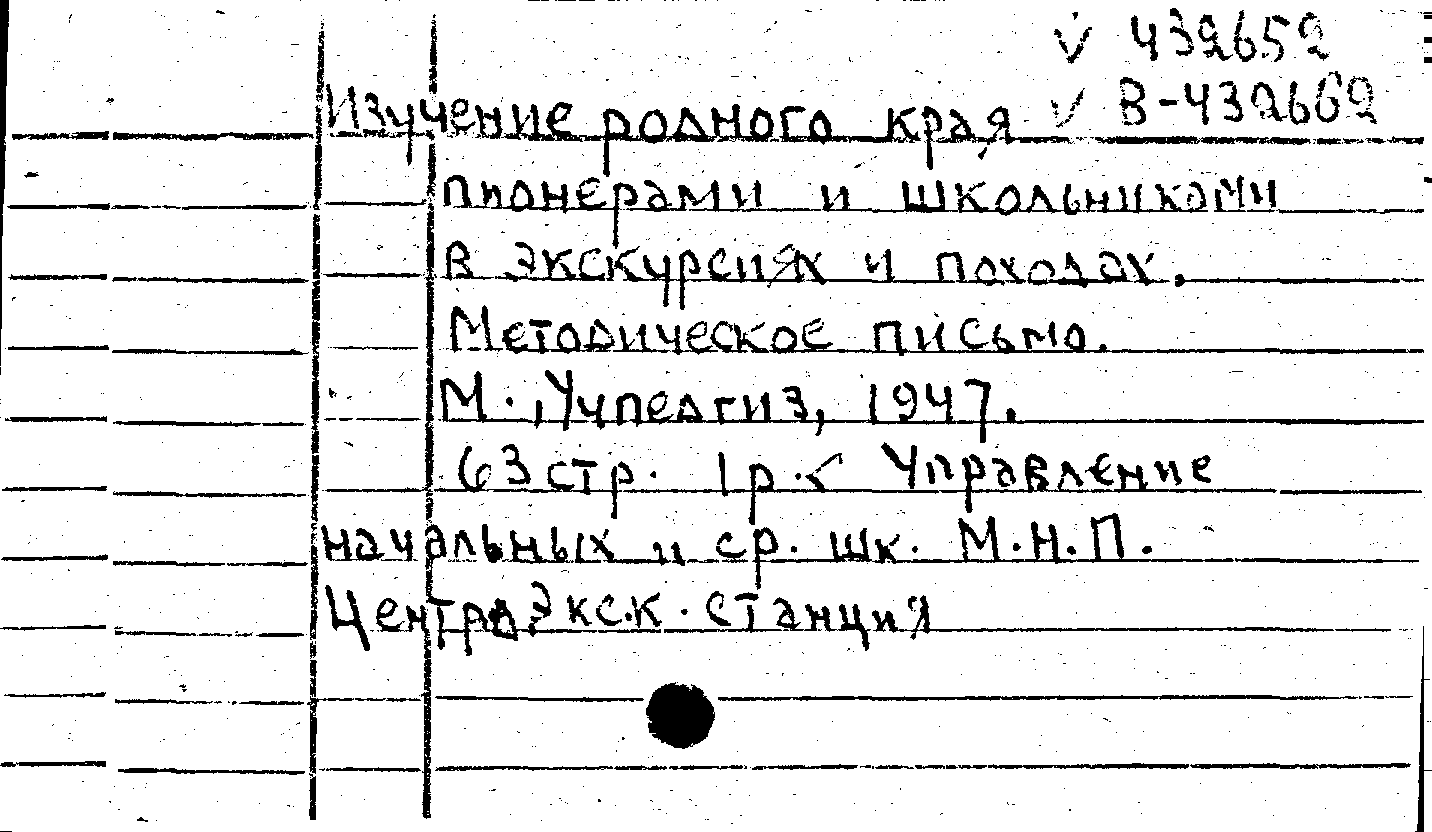 V 432652
Изучение родного края V В-432662
пионерами и школьниками
в экскурсиях и походах.
Методическое письмо.
М., Учпедгиз, 1947.
63 стр. 1 р. < Управление
начальных и ср. шк. М.Н.П.
Центр. Экск. станция